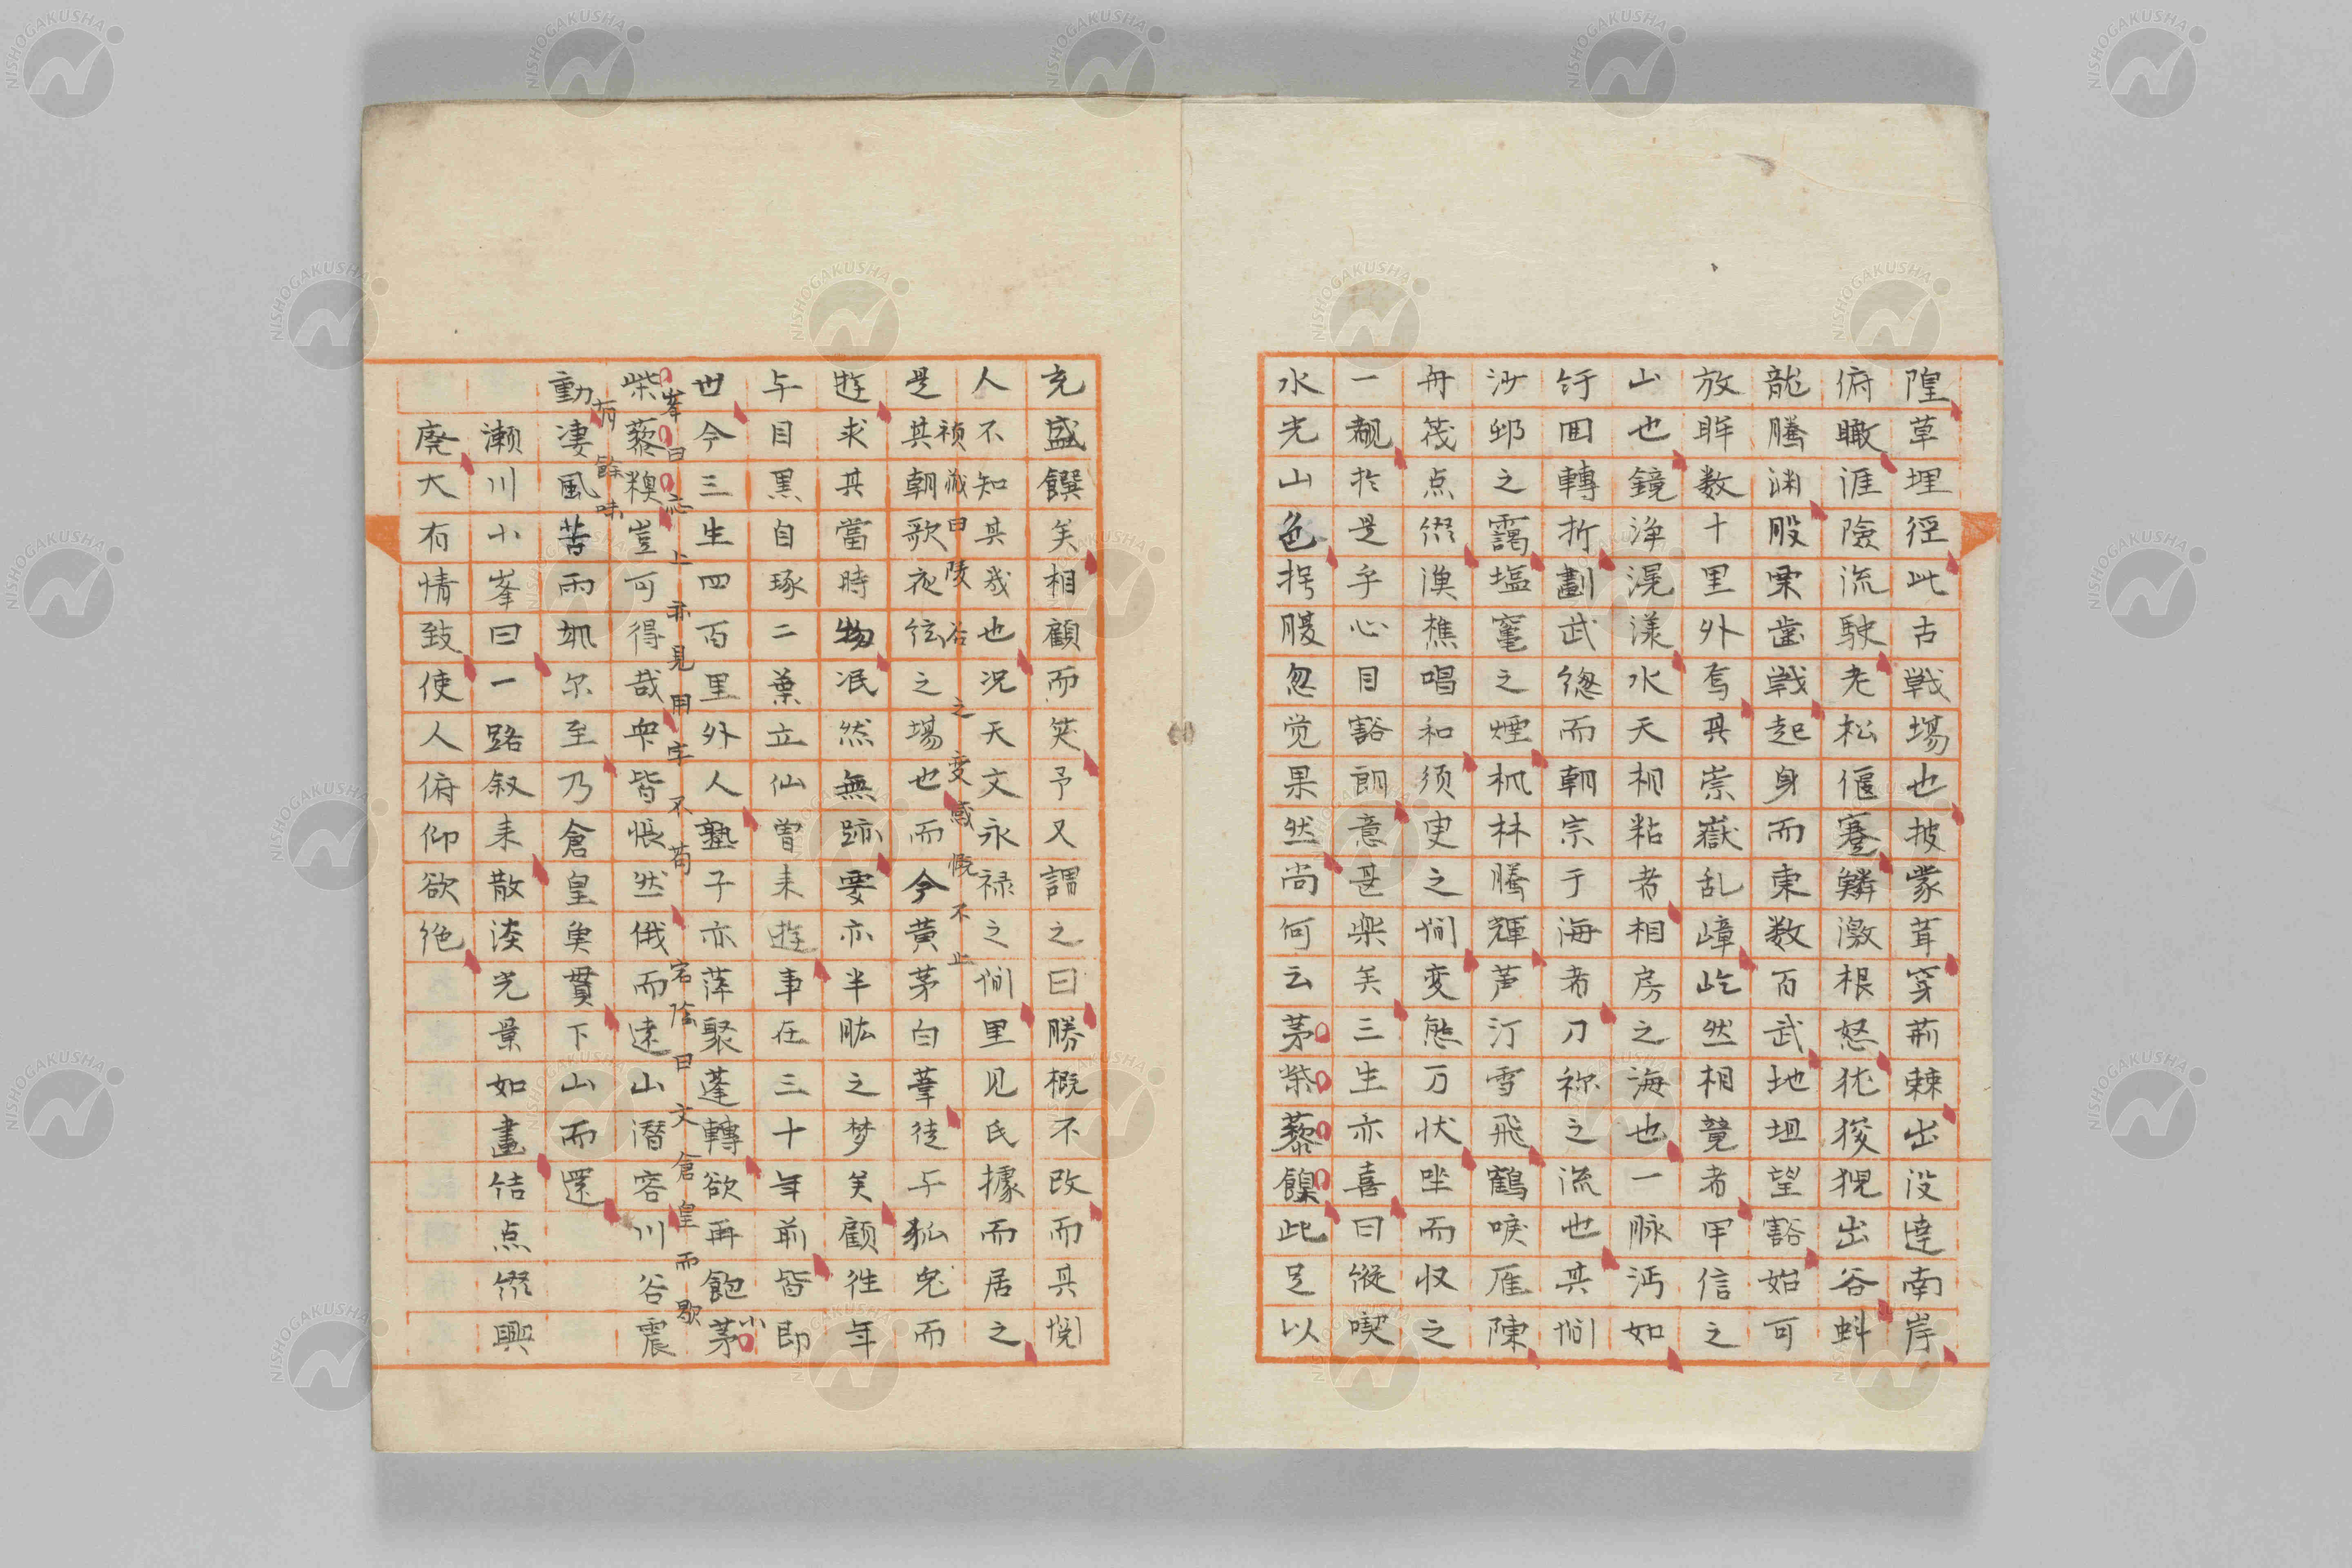 隍草埋徑此古戦場也披蒙茸穿荊棘出没達南岸
俯瞰涯險流駛老松偃蹇鱗激根怒狖猨猊出谷蚪
龍騰渊股栗歯戦起身而東数百武地坦望豁始可
放眸数十里外寫其崇嶽乱嶂屹然相競者甲信之
山也鏡浄滉漾水天相粘者相房之海也一脉沔如
紆回轉折劃武緫而朝宗于海者刀祢之流也其間
沙邨之靄塩竈之煙机林騰輝芦汀雪飛鶴唳雁陳
舟筏点綴漁樵唱和須臾之間変態万状坐而収之
一覩於是乎心目豁朗意甚楽矣三生亦喜曰縦喫
水光山色拐腹忽覚果然尚何云茅柴藜饙此足以
充盛饌矣相顧而笑予又謂之曰勝概不改而其悦
人不知其幾也况天文永禄之間里见氏據而居之
是其朝歌夜絃之場也而今黄茅白葦徒与狐兎而
禎蔵曰陵谷之変感慨不止
遊求其當時物泯然無跡要亦半肱之梦矣顧往年
与目黒自琢二葉立仙曽来遊事在三十年前皆即
世今三生四百里外人塾子亦萍聚蓬轉欲再飽茅
小
峯曰応上亦見用字不苟
宕陰曰文倉皇而歇
有餘味
柴藜糗豈可得哉衆皆悵然俄而遠山潜容川谷震
動凄風苦雨颯尓至乃倉皇魚貫下山而還
瀬川小峯曰一路叙来散淡光景如畫佶点綴興
廃大有情致使人俯仰欲绝
NISHOGAKUSHA